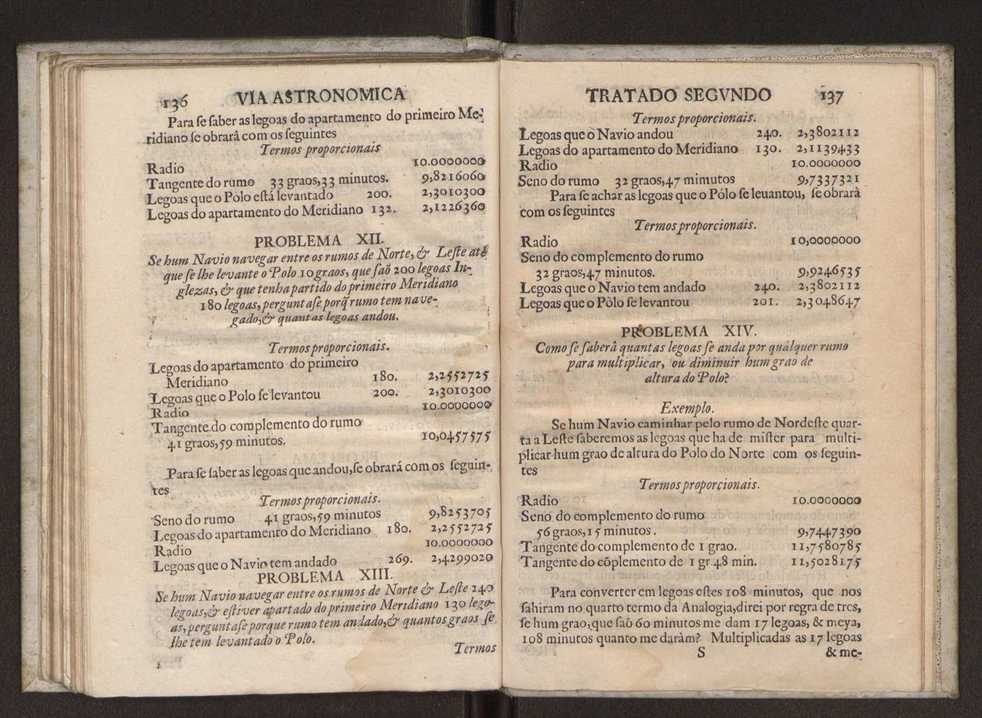 136 VIA ASTRONOMICA
Para se saber as legoas do apartamento do primeiro Me-
ridiano se obrará com os seguintes
Termos proporcionais
Radio 10.0000000
Tangente do rumo 33 graos,33 minutos. 9,8216060
Legoas que o Pólo está levantado 200. 2,3010300
Legoas do apartamento do Meridiano 132. 2,1226360
PROBLEMA XII.
Se hum Navio navegar entre os rumos de Norte, & Leste até
que se lhe levante o Polo 10 graos, que saõ 200 legoas In-
glezas, & que tenha partido do primeiro Meridiano
180 legoas, perguntase porq̃ rumo tem nave-
gado,& quantas legoas andou.
Termos proporcionais.
Legoas do apartamento do primeiro
Meridiano 180. 2,2552725
Legoas que o Polo se levantou 200. 2,3010300
Radio 10.0000000
Tangente do complemento do rumo
41 graos,59 minutos. 10,0457575
Para se saber as legoas que andou,se obrará com os seguin-
tes
Termos proporcionais.
Seno do rumo 41 graos,59 minutos 9,8253705
Legoas do apartamento do Meridiano 180. 2,2552725
Radio 10.0000000
Legoas que o Navio tem andado 269. 2,4299020
PROBLEMA XIII.
Se hum Navio navegar entre os rumos de Norte & Leste 240
legoas,& estiver apartado do primeiro Meridiano 130 lego-
as, perguntase porque rumo tem andado,& quantos graos se
lhe tem levantado o Polo.
Termos
TRATADO SEGVNDO 137
Termos proporcionais.
Legoas que o Navio andou 240. 2,3802112
Legoas do apartamento do Meridiano 130. 2,1139433
Radio 10.0000000
Seno do rumo 32 graos,47 mimutos 9,7337321
Para se achar as legoas que o Pólo se leuantou, se obrará
com os seguintes
Termos proporcionais.
Radio 10,0000000
Seno do complemento do rumo
32 graos,47 minutos. 9,9246535
Legoas que o Navio tem andado 240. 2,3802112
Legoas que o Pólo se levantou 201. 2,3048647
PROBLEMA XIV.
Como se saberá quantas legoas se anda por qualquer rumo
para multiplicar, ou diminuir hum grao de
altura do Polo?
Exemplo.
Se hum Navio caminhar pelo rumo de Nordeste quar-
ta a Leste saberemos as legoas que ha de mister para multi-
plicar hum grao de altura do Polo do Norte com os seguin-
tes
Termos proporcionais.
Radio 10.0000000
Seno do complemento do rumo
56 graos,15 minutos. 9,7447390
Tangente do complemento de 1 grao. 11,7580785
Tangente do cõplemento de 1 gr.48 min. 11,5028175
Para converter em legoas estes 108 minutos, que nos
sahiram no quarto termo da Analogia,direi por regra de tres,
se hum grao,que saõ 60 minutos me dam 17 legoas, & meya,
108 minutos quanto me daràm? Multiplicadas as 17 legoas
S & me-